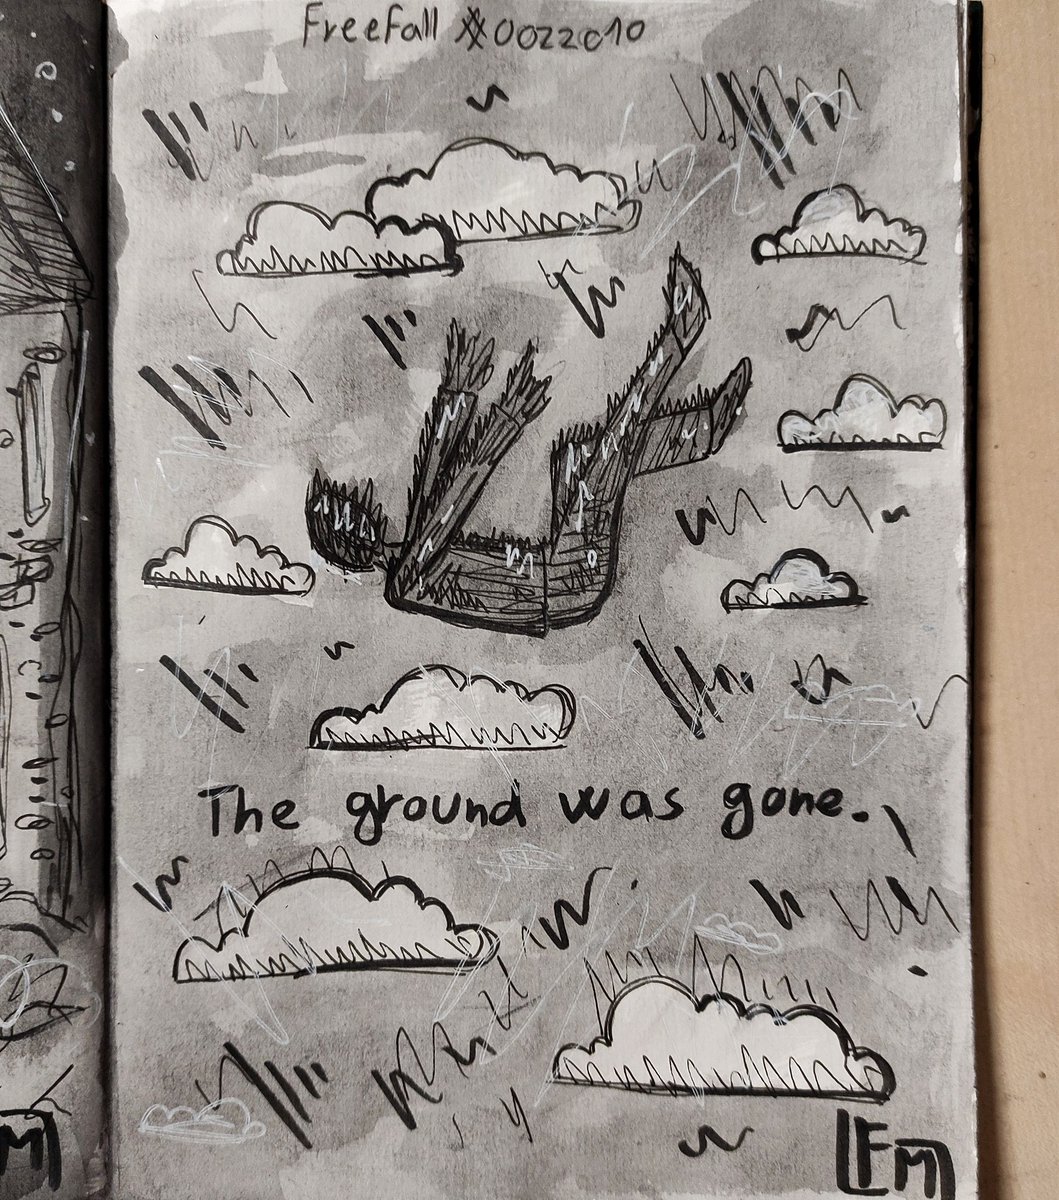 Freefall #0022010
The ground was gone.
LFM